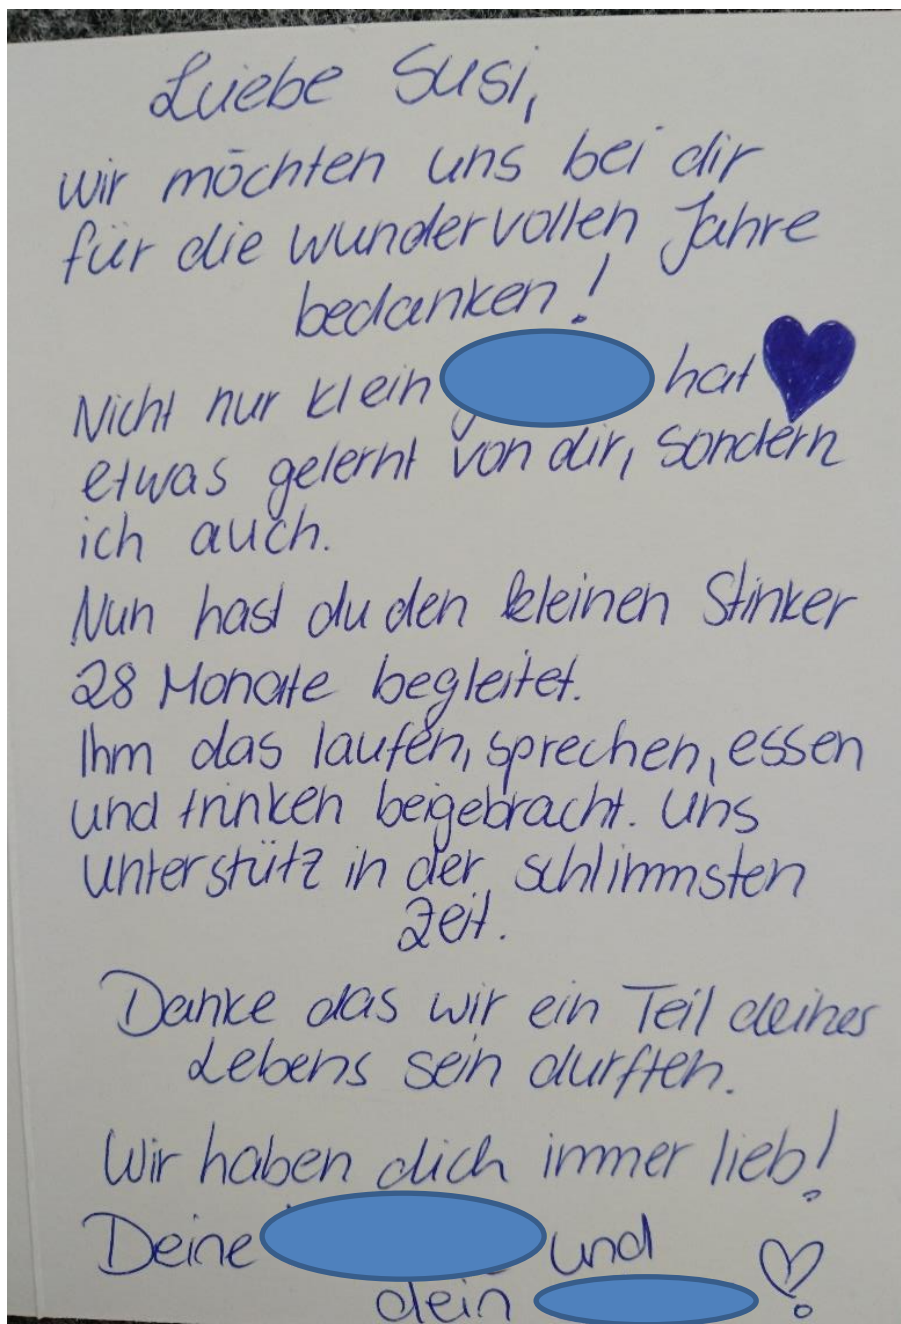 Liebe Susi,
wir möchten uns bei dir
für die wundervollen Jahre
bedanken!
Nicht nur klein hat
etwas gelernt von dir, sondern
ich auch.
Nun hast du den kleinen Stinker
28 Monate begleitet.
Ihm das laufen, sprechen, essen
und trinken beigebracht. Uns
unterstütz in der schlimmsten
Zeit.
Danke das wir ein Teil deines
Lebens sein durften.
Wir haben dich immer lieb!
Deine und
dein